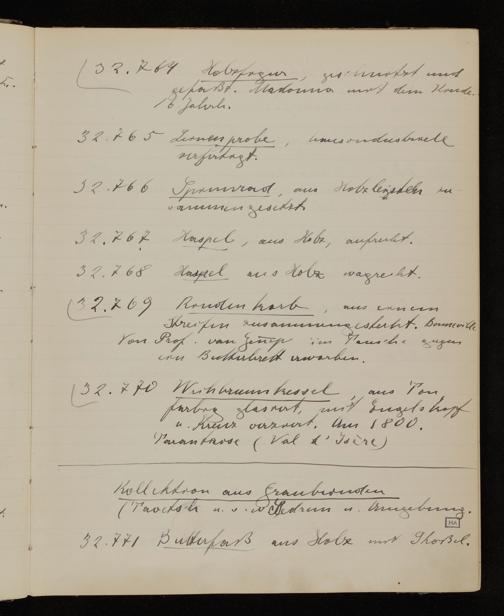 32.764 Holzfigur, geschnitzt und
gefasst. Madonna mit dem Kinde.
16 Jahrh.
32.765 Leinenprobe,
verfertigt.
32.766 Spinnrad, aus Holzleisten zu-
sammengesetzt
32.767 Haspel, aus Holz, aufrecht.
32.768 Haspel aus Holz wagrecht.
32.769 Rindenkorb, aus einem
Streifen zusammengesteckt. Bonneville
Von Prof. van Gennep im Tausche gegen
ein Butterbrett erworben.
32.770 Weihbrunnkessel, aus Ton
farbig glasiert, mit Engelskopf
u. Kreuz verziert. Um 1800.
Tarantaise (Val d'Isère)
Kollektion aus Graubünden
(Tavetsch u. s. w. Sedrun u. Umgebung.
HA
32.771 Butterfaß aus Holz mit Stössel.